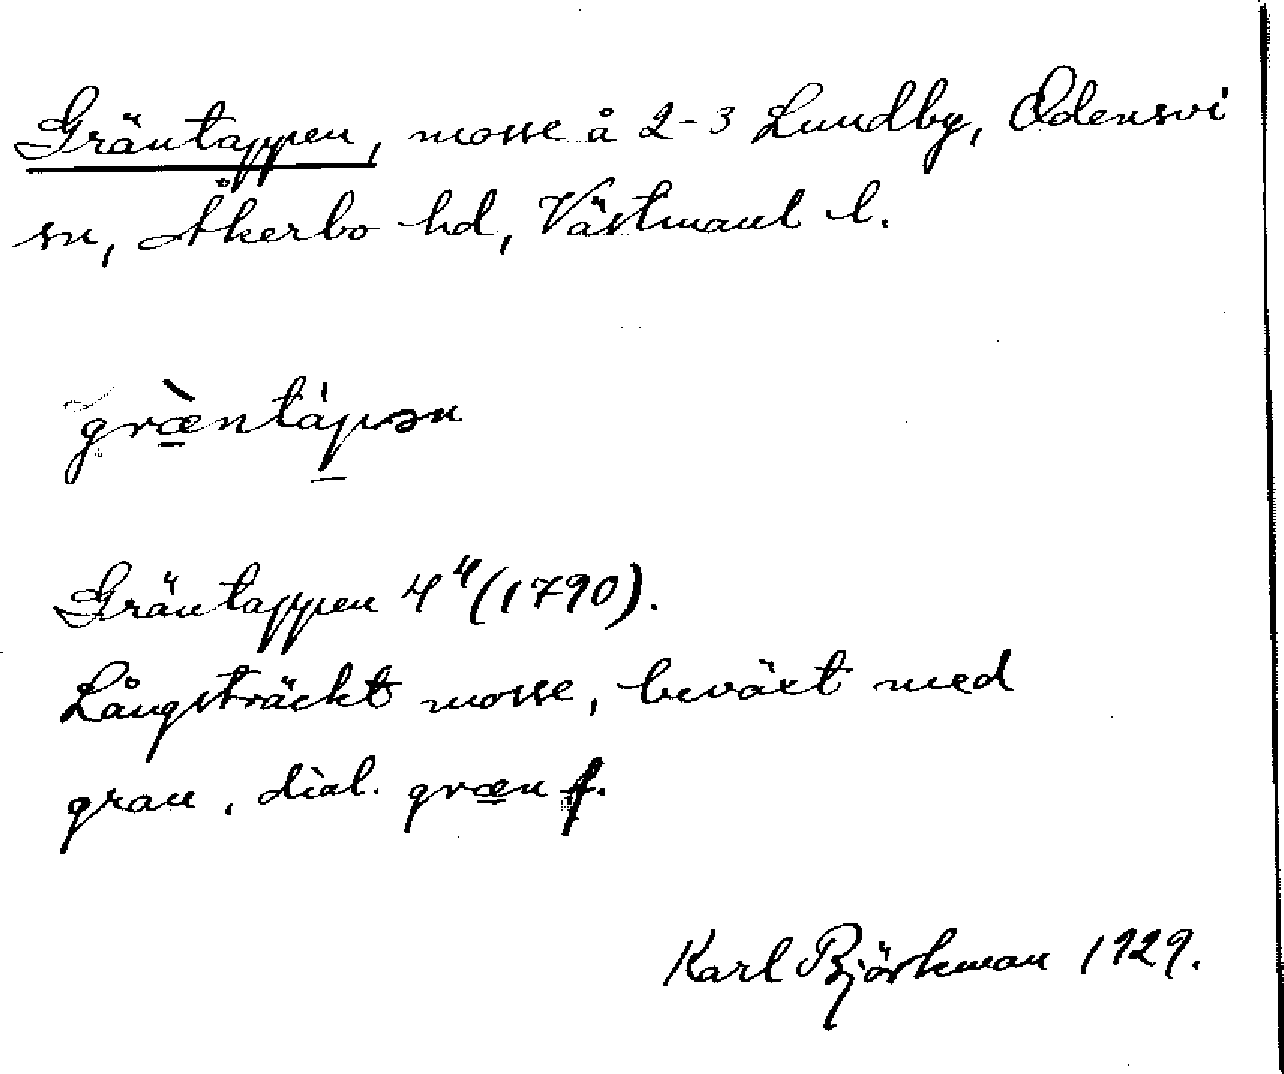 Gräntappen, mosse å 2-3 Lundby, Odensvi
sn, Åkerbo hd, Västmanl l.
græ̀ntàpən
Gräntappen 4⁴ (1790).
Långsträckt mosse, beväxt med
gran, dial. græn f.
Karl Björkman 1929.